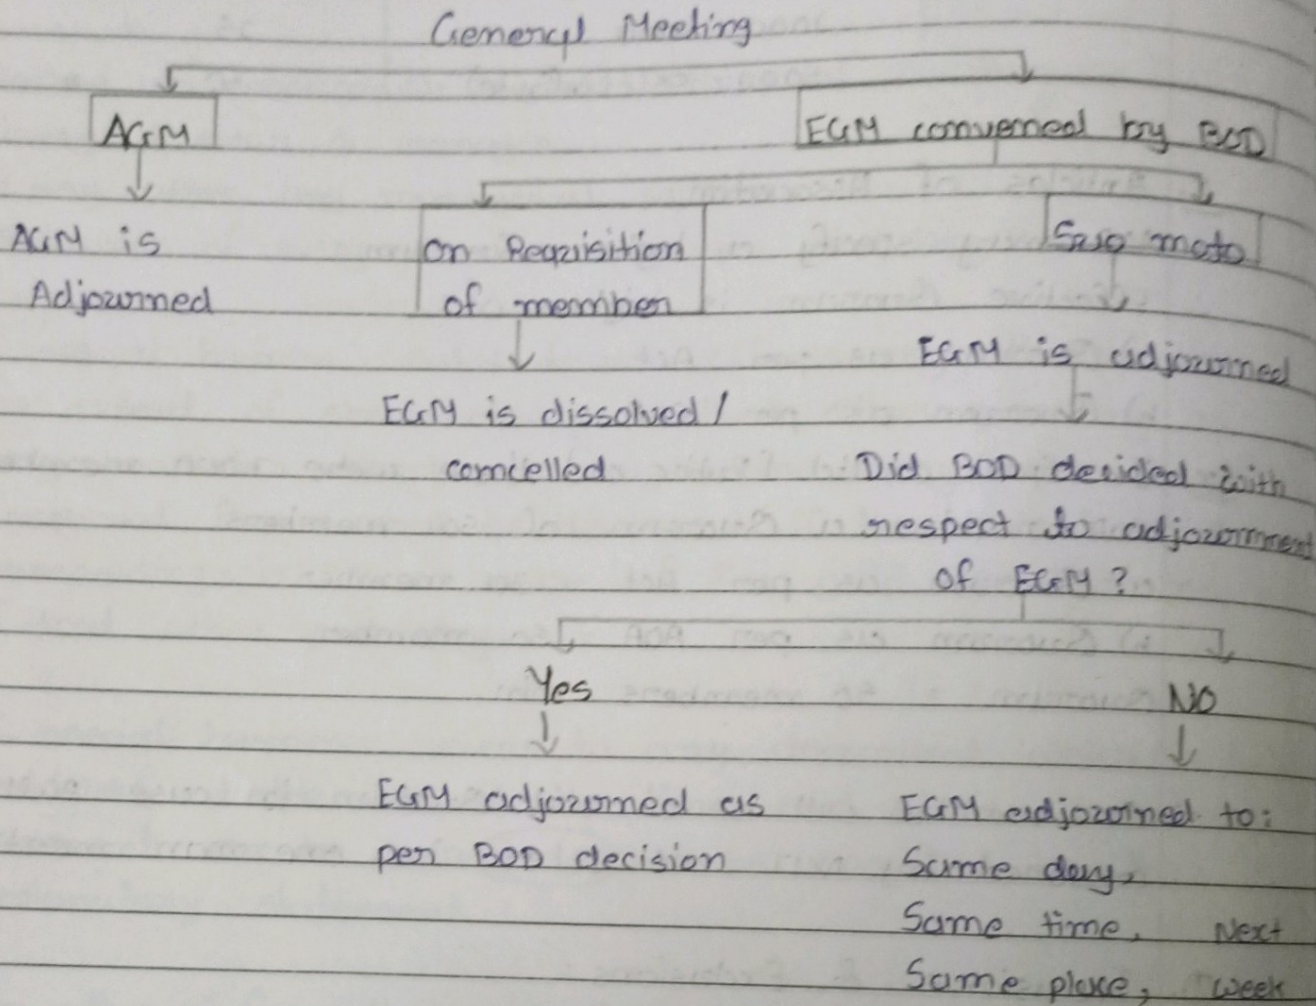 General Meeting
AGM
EGM convened by BOD
AGM is
Adjourned
On Requisition
of member
Suo moto
EGM is dissolved /
cancelled
EGM is adjourned
Did BOD decided with
respect to adjournment
of EGM ?
Yes
NO
EGM adjourned as
per BOD decision
EGM adjourned to:
Same day,
Same time, Next
Same place, week